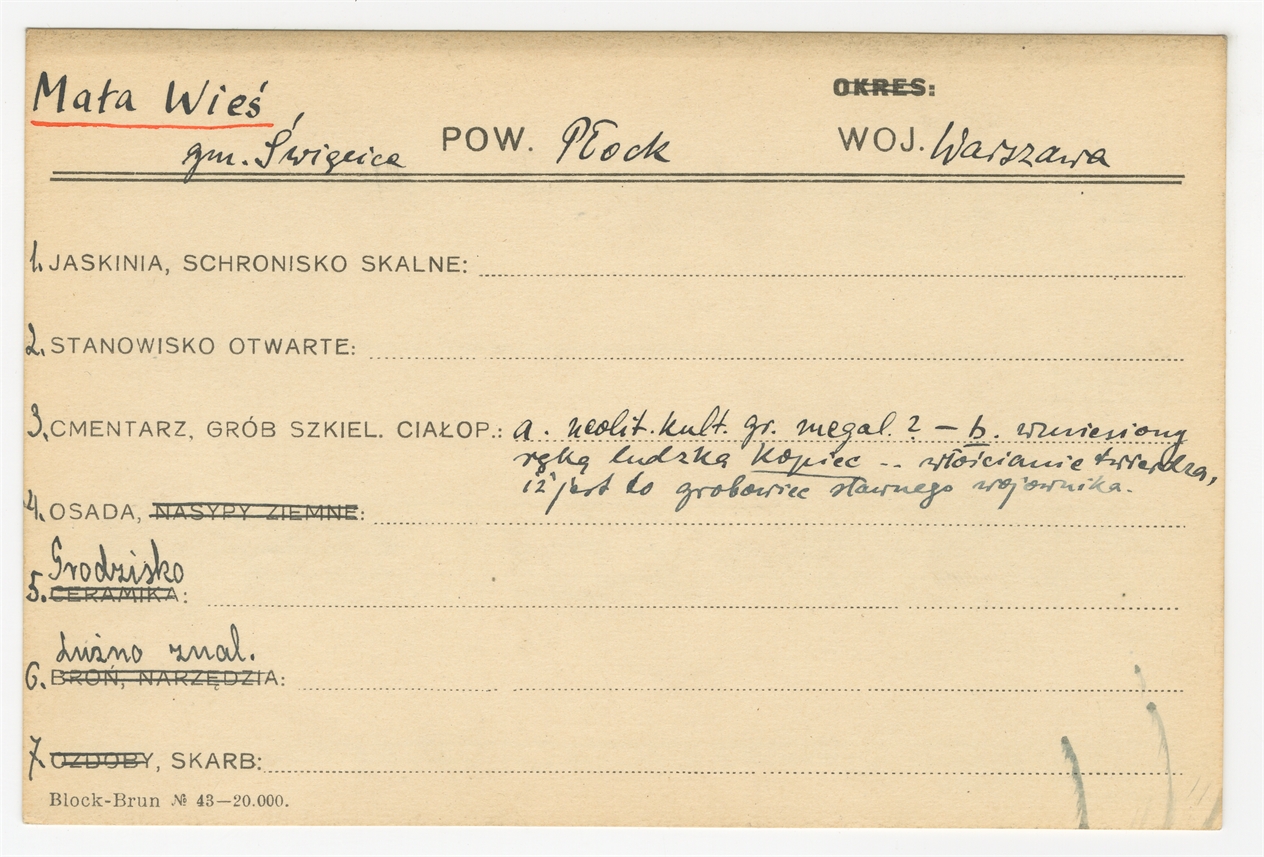 Mała Wieś
OKRES:
gm. Święcice POW. Płock WOJ. Warszawa
1. JASKINIA, SCHRONISKO SKALNE:
2. STANOWISKO OTWARTE:
3. CMENTARZ, GRÓB SZKIEL. CIAŁOP.: a. neolit. kult. gr. megal. ? – b. wzniesiony
ręką ludzką kopiec .. włościanie twierdzą,
iż jest to grobowiec sławnego wojownika.
4. OSADA, NASYPY ZIEMNE:
Grodzisko
5. CERAMIKA:
Luźno znal.
6. BROŃ, NARZĘDZIA:
7. OZDOBY, SKARB:
Block-Brun № 43—20.000.